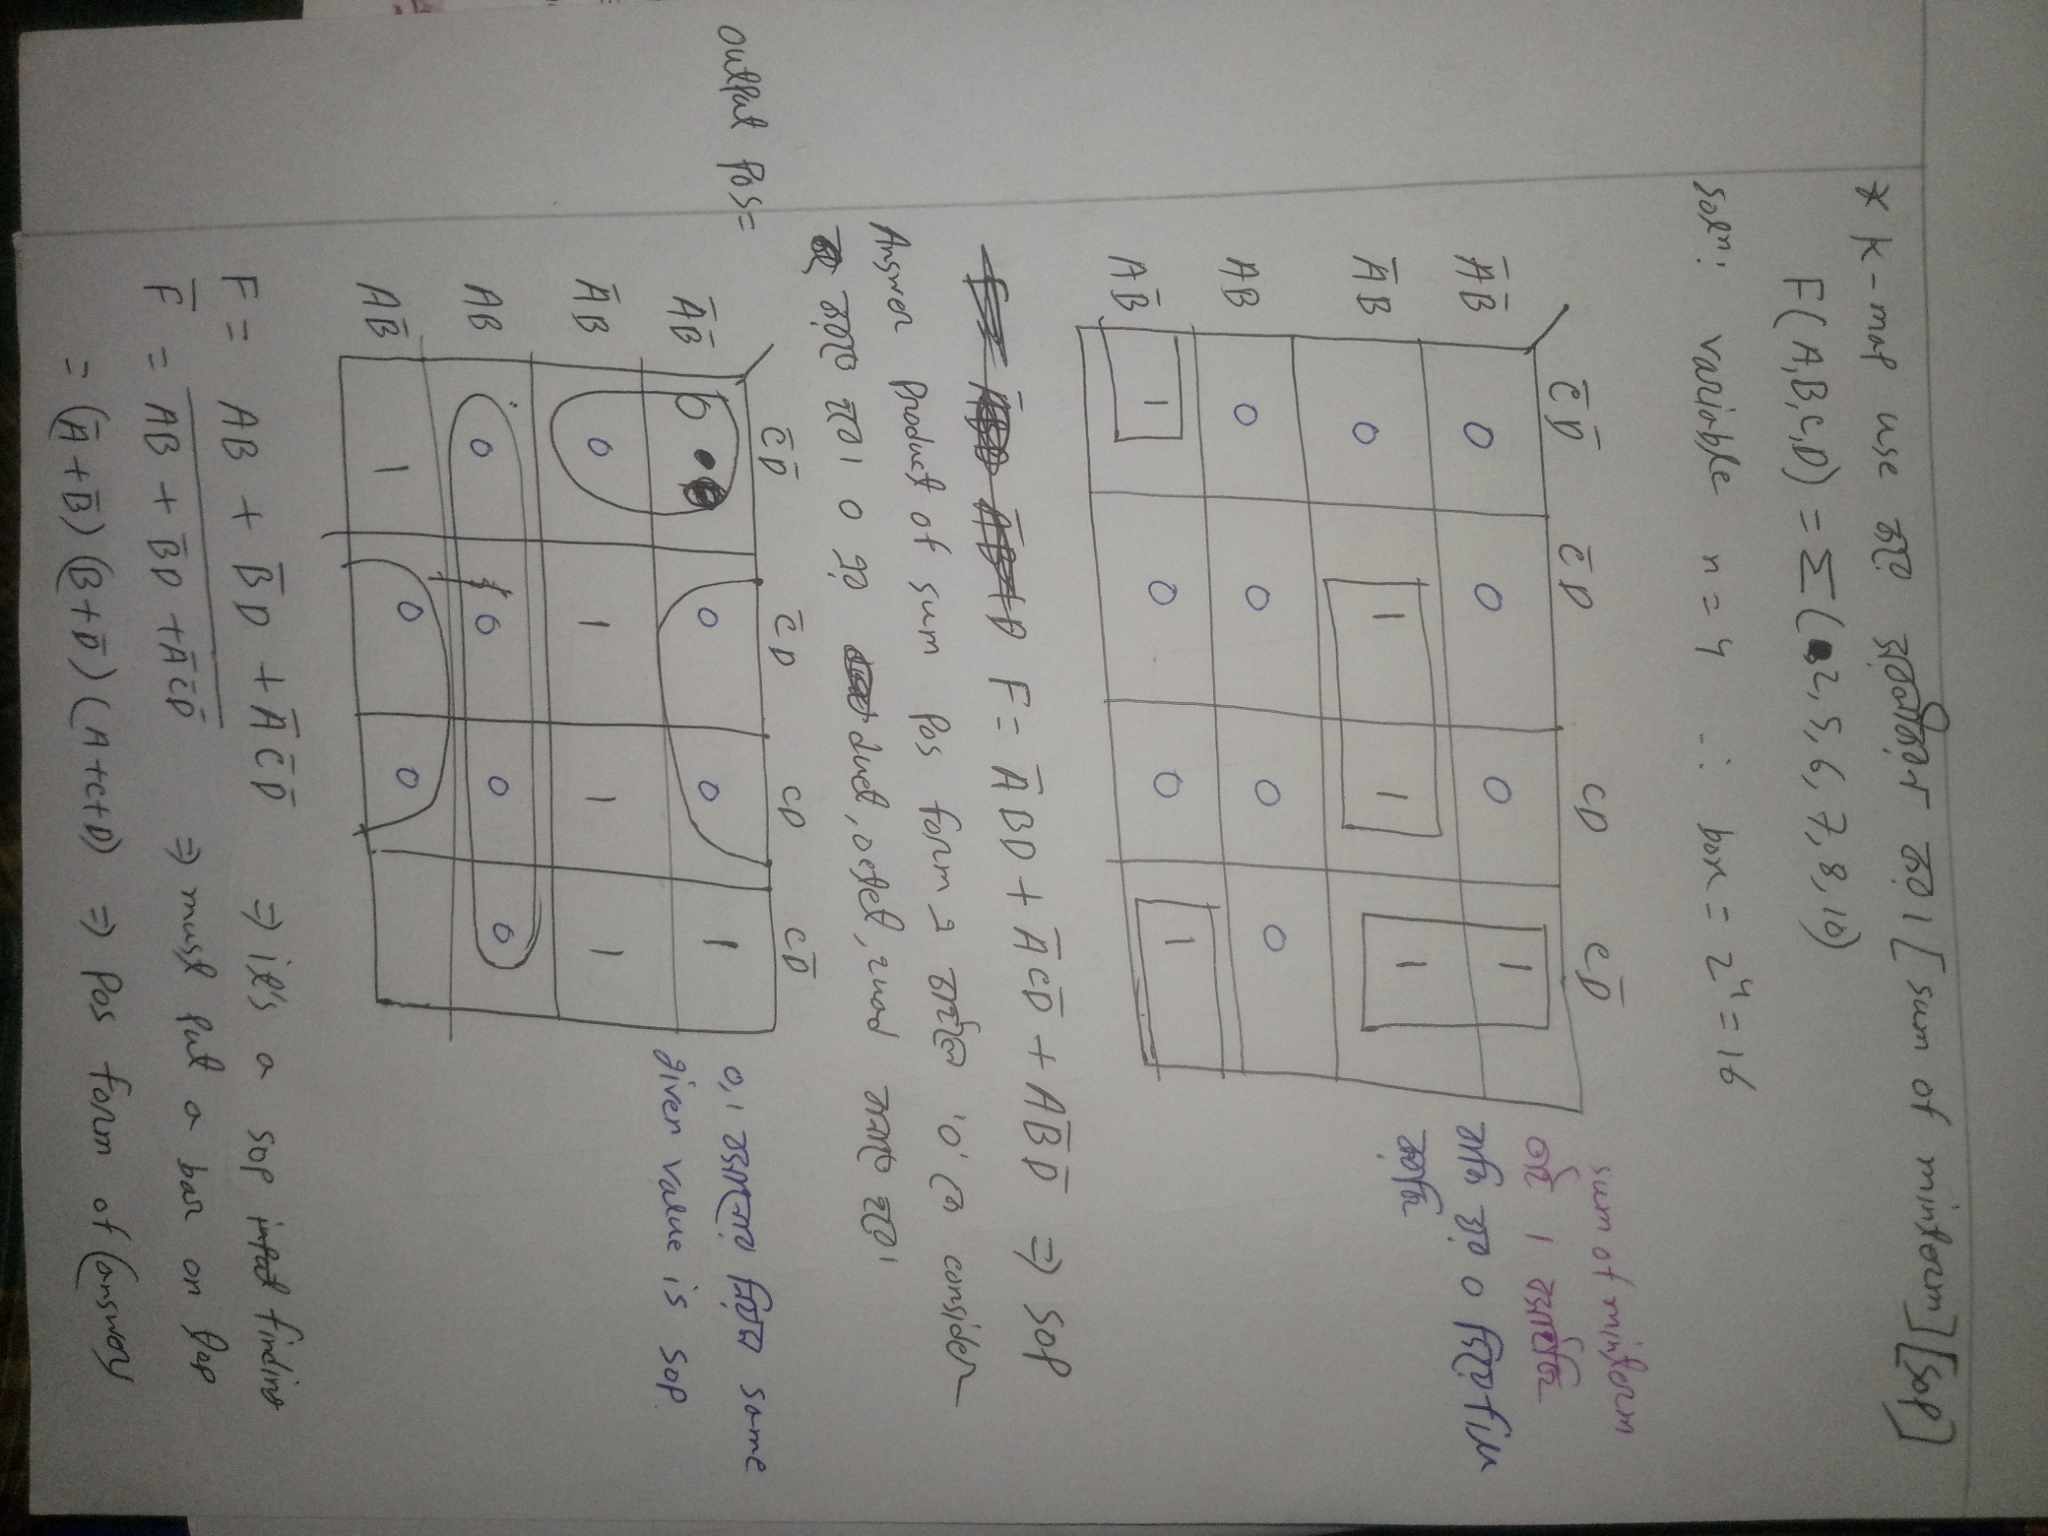 * K-map use করে সরলীকরন কর। [sum of minterm] [SOP]
F(A,B,C,D) = Σ(2,5,6,7,8,10)
Solⁿ: variable n=4 ∴ box = 2⁴ = 16
C̅D̅ C̅D CD CD̅
A̅B̅ 0 0 0 1
A̅B 0 1 1 1
AB 0 0 0 0
AB̅ 1 0 0 1
sum of minterm
তাই 1 বসাইছি
বাকি ঘর 0 দিয়ে fill
করছি
F = A̅BD + A̅CD̅ + AB̅D̅ ⇒ SOP
Answer Product of sum POS form এ চাইলে '0' কে consider
করতে হবে। 0 এর duet, octet, quad বানাতে হবে।
output POS=
C̅D̅ C̅D CD CD̅
A̅B̅ 0 0 0 1
A̅B 0 1 1 1
AB 0 0 0 0
AB̅ 1 0 0
0,1 বসানোর নিয়ম same
given value is SOP.
F = AB + B̅D + A̅C̅D̅ ⇒ it's a SOP finding
F̅ = \overline{AB + B̅D + A̅C̅D̅} ⇒ must put a bar on top
= (A̅+B̅) (B+D̅) (A+C+D) ⇒ POS form of (answer)